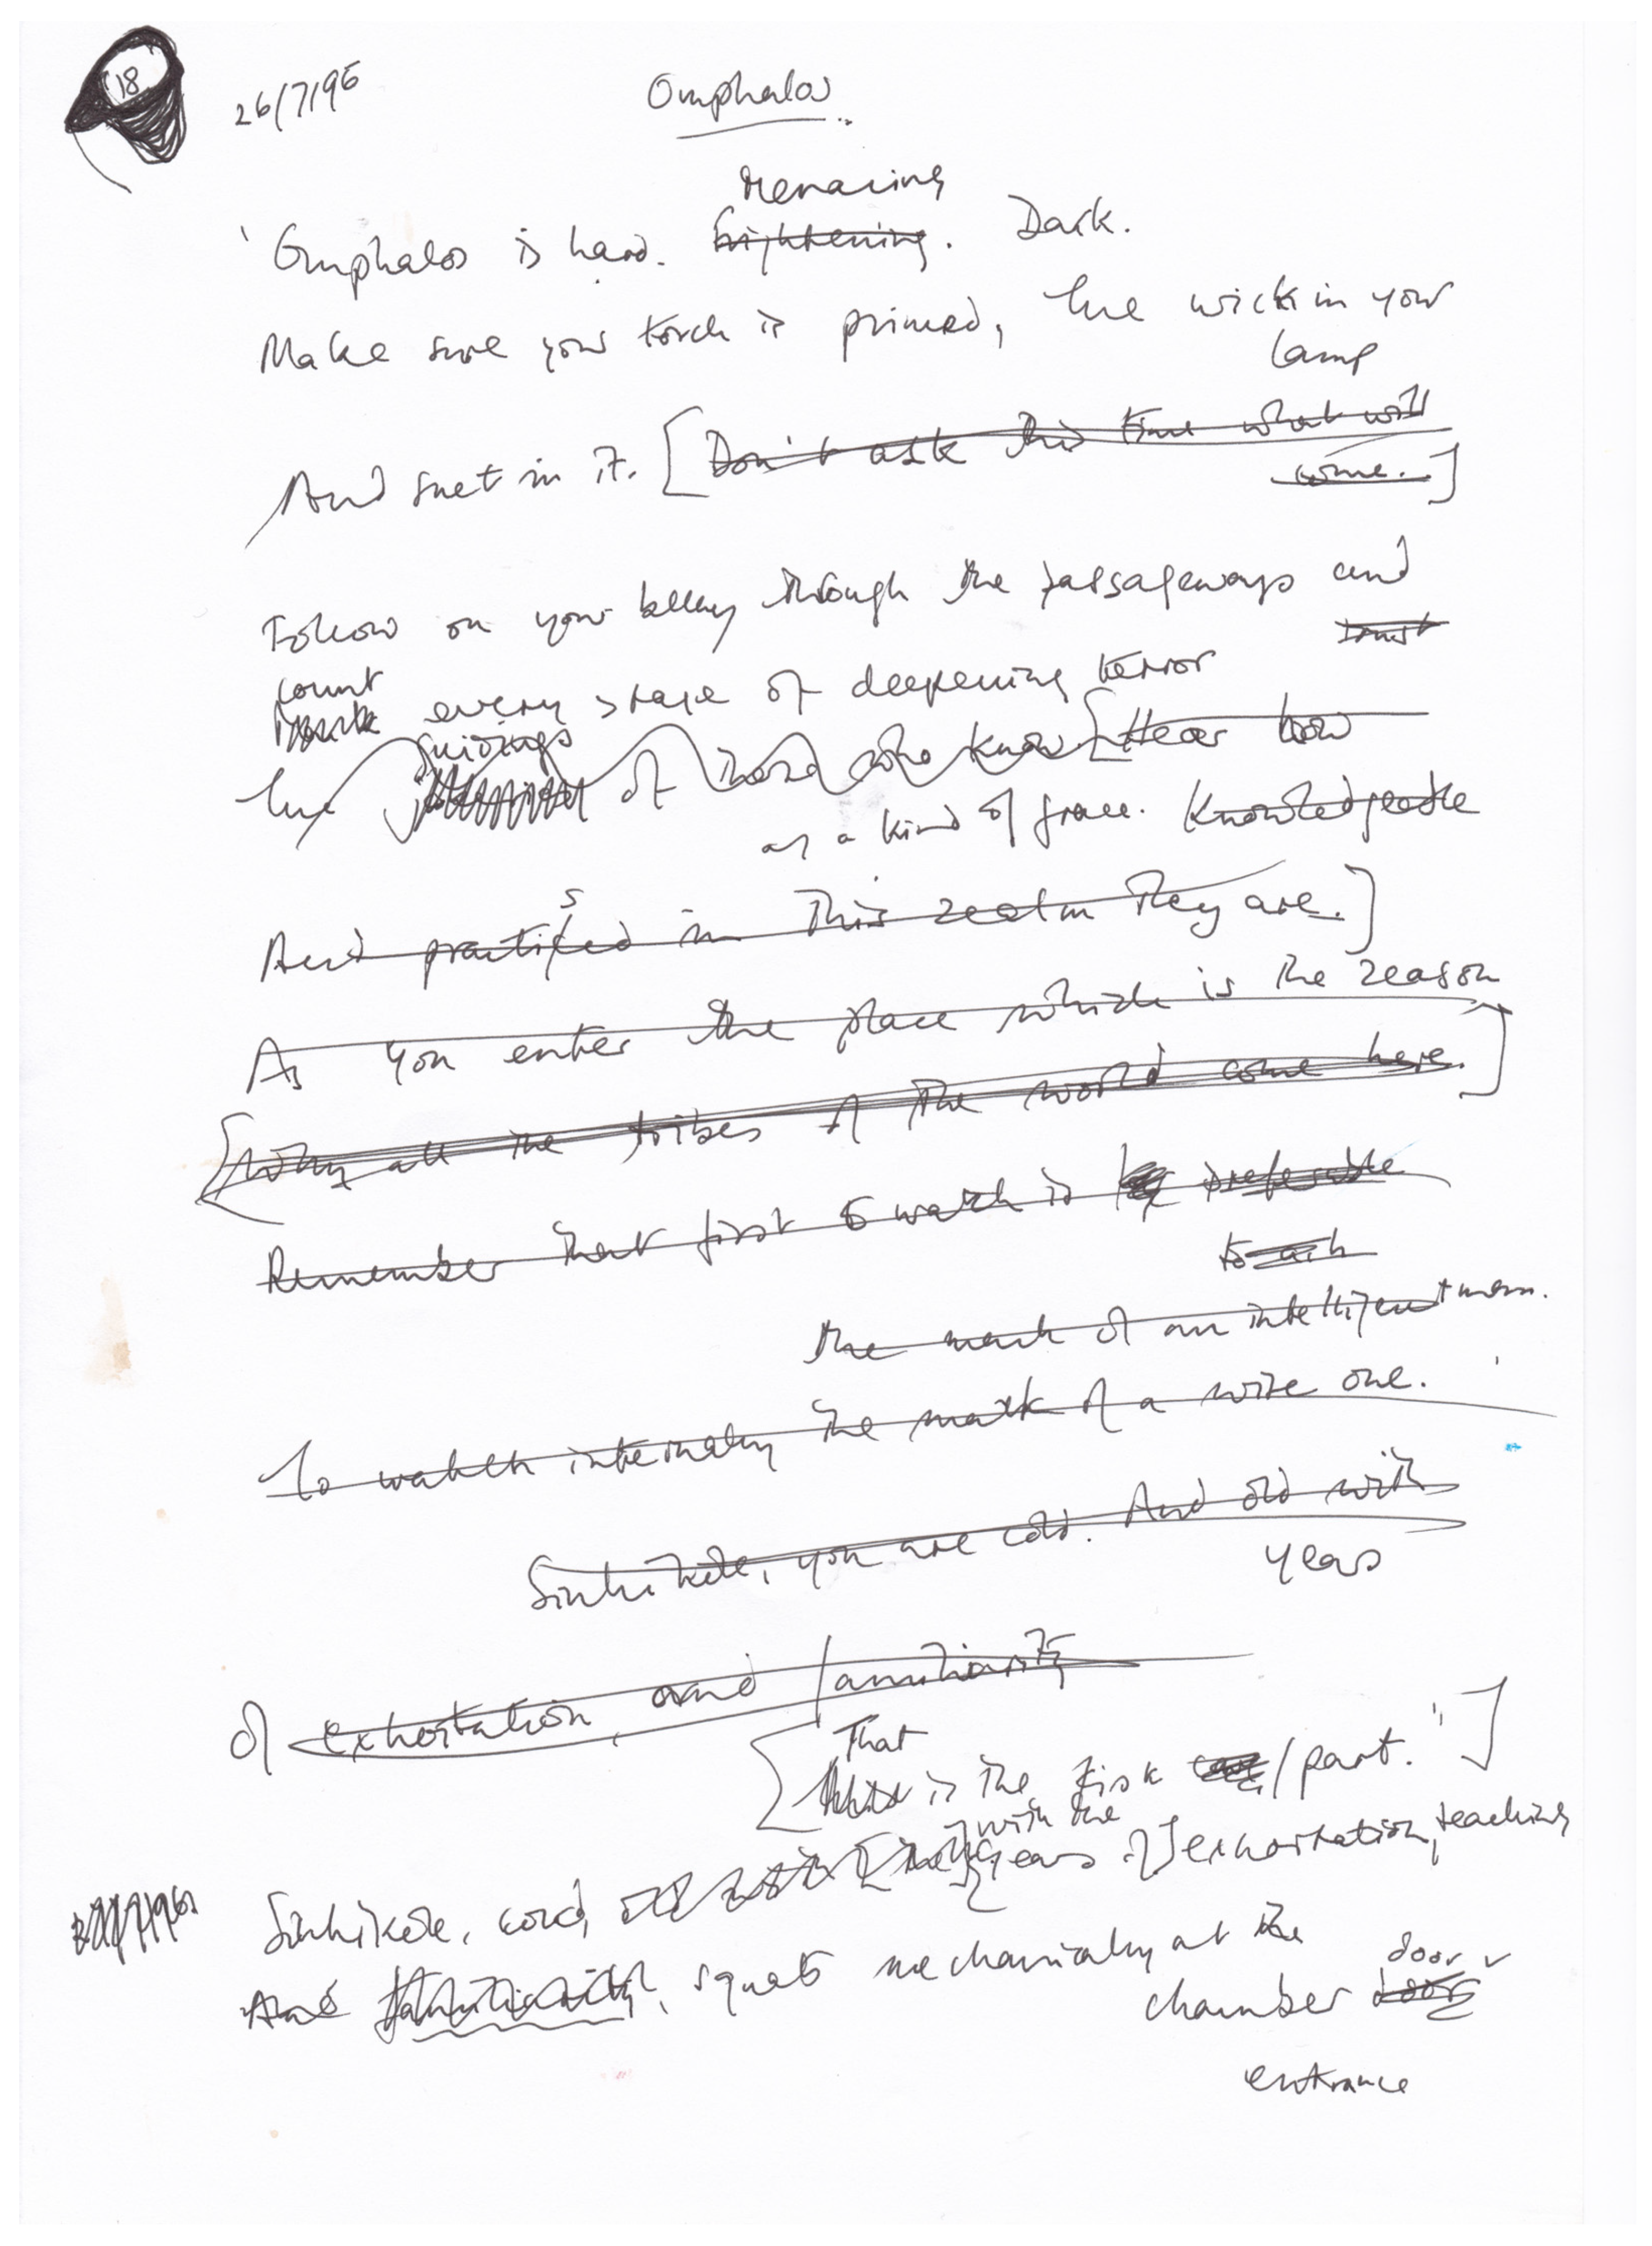 18
26/7/96
Omphalos
Menacing
'Omphalos is hard. frightening. Dark.
Make sure your torch is primed, the wick in your
lamp
And suet in it. [Don't ask this time what will
come.]
Follow on your belly through the passageways and
trust
count
every stage of deepening terror
guidings
the of those who know [Hear how
as a kind of grace. Knowledgeable
s
And practiced in this realm they are.]
As you enter the place which is the reason
[Why all the tribes of the world come here.]
Remember that first to watch is preferable
to
the mark of an intelligent man.
To watch internally the mark of a wise one.'
Sinhikole, you are cold. And old with
years
of exhortation, and familiarity
That
[this is the first / part."]
with the
Sinhikole, cold, years of] exhortation, teaching
And familiarity, squats mechanically at the
door
chamber door
entrance